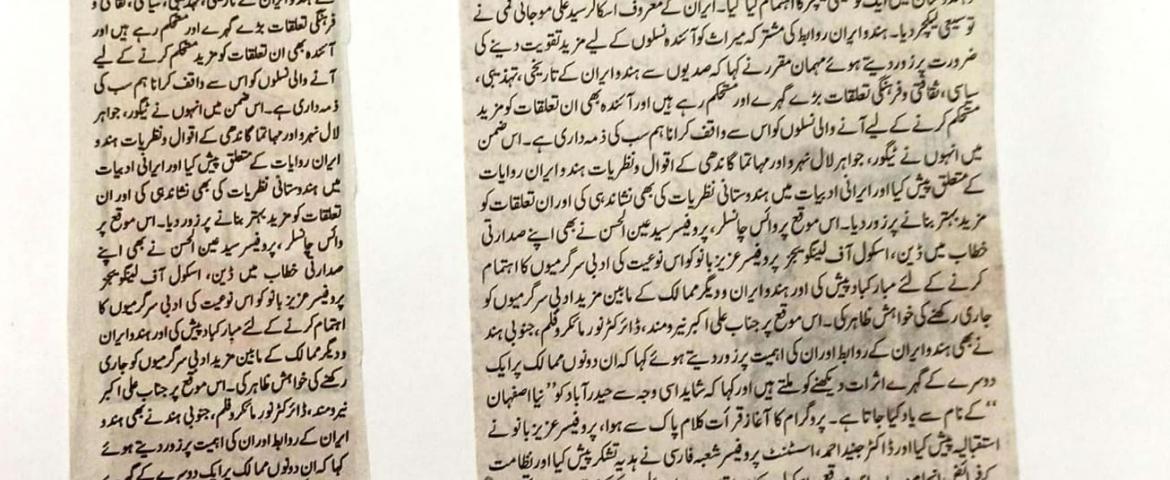 فرہنگی تعلقات بڑے گہرے اور مستحکم رہے ہیں اور
آئندہ بھی ان تعلقات کو مزید مستحکم کرنے کے لیے
آنے والی نسلوں کو اس سے واقف کرانا ہم سب کی
ذمہ داری ہے۔ اس ضمن میں انہوں نے ٹیگور، جواہر
لال نہرو اور مہاتما گاندھی کے اقوال و نظریات ہندو
ایران روایات کے متعلق پیش کیا اور ایرانی ادبیات
میں ہندوستانی نظریات کی بھی نشاندہی کی اور ان
تعلقات کو مزید بہتر بنانے پر زور دیا۔ اس موقع پر
وائس چانسلر، پروفیسر سید عین الحسن نے بھی اپنے
صدارتی خطاب میں ڈین، اسکول آف لینگویجز
پروفیسر عزیز بانو کو اس نوعیت کی ادبی سرگرمیوں کا
اہتمام کرنے کے لئے مبارکباد پیش کی اور ہندو ایران
و دیگر ممالک کے مابین مزید ادبی سرگرمیوں کو جاری
رکھنے کی خواہش ظاہر کی۔ اس موقع پر جناب علی اکبر
نیرومند، ڈائرکٹر نور مائکروفلم، جنوبی ہند نے بھی ہندو
ایران کے روابط اور ان کی اہمیت پر زور دیتے ہوئے
کہا کہ ان دونوں ممالک پر ایک دوسرے کے گہرے
ایران کے معروف اسکالر سید علی موجانی قمی نے
توسیعی لیکچر دیا۔ ہندو ایران روابط کی مشترکہ میراث کو آئندہ نسلوں کے لیے مزید تقویت دینے کی
ضرورت پر زور دیتے ہوئے مہمان مقرر نے کہا کہ صدیوں سے ہندو ایران کے تاریخی، تہذیبی،
سیاسی، ثقافتی و فرہنگی تعلقات بڑے گہرے اور مستحکم رہے ہیں اور آئندہ بھی ان تعلقات کو مزید
مستحکم کرنے کے لیے آنے والی نسلوں کو اس سے واقف کرانا ہم سب کی ذمہ داری ہے۔ اس ضمن
میں انہوں نے ٹیگور، جواہر لال نہرو اور مہاتما گاندھی کے اقوال و نظریات ہندو ایران روایات
کے متعلق پیش کیا اور ایرانی ادبیات میں ہندوستانی نظریات کی بھی نشاندہی کی اور ان تعلقات کو
مزید بہتر بنانے پر زور دیا۔ اس موقع پر وائس چانسلر، پروفیسر سید عین الحسن نے بھی اپنے صدارتی
خطاب میں ڈین، اسکول آف لینگویجز پروفیسر عزیز بانو کو اس نوعیت کی ادبی سرگرمیوں کا اہتمام
کرنے کے لئے مبارکباد پیش کی اور ہندو ایران و دیگر ممالک کے مابین مزید ادبی سرگرمیوں کو
جاری رکھنے کی خواہش ظاہر کی۔ اس موقع پر جناب علی اکبر نیرومند، ڈائرکٹر نور مائکروفلم، جنوبی ہند
نے بھی ہندو ایران کے روابط اور ان کی اہمیت پر زور دیتے ہوئے کہا کہ ان دونوں ممالک پر ایک
دوسرے کے گہرے اثرات دیکھنے کو ملتے ہیں اور کہا کہ شاید اسی وجہ سے حیدرآباد کو ”نیا اصفہان
“ کے نام سے یاد کیا جاتا ہے۔ پروگرام کا آغاز قرأت کلام پاک سے ہوا، پروفیسر عزیز بانو نے
استقبالیہ پیش کیا اور ڈاکٹر جنید احمد، اسسٹنٹ پروفیسر شعبہ فارسی نے ہدیہ تشکر پیش کیا اور نظامت